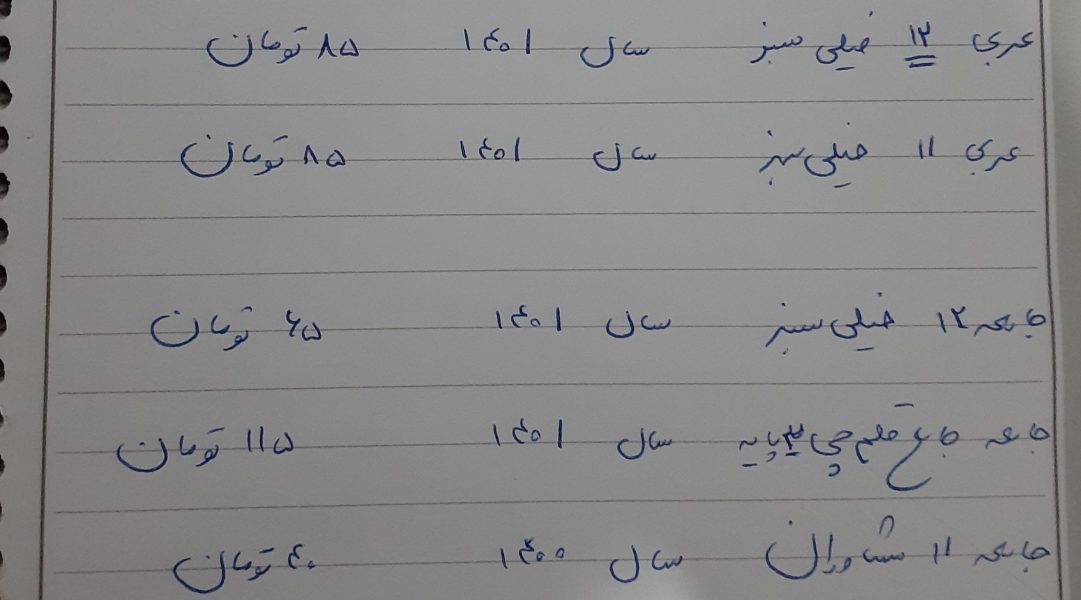 عربی ۱۲ خیلی سبز سال ۱۴۰۱ ۸۵ تومان
عربی ۱۱ خیلی سبز سال ۱۴۰۱ ۸۵ تومان
جامعه ۱۲ خیلی سبز سال ۱۴۰۱ ۶۵ تومان
جامعه جامع قلم چی ۳ پایه سال ۱۴۰۱ ۱۱۵ تومان
جامعه ۱۱ مشاوران سال ۱۴۰۰ ۴۰ تومان